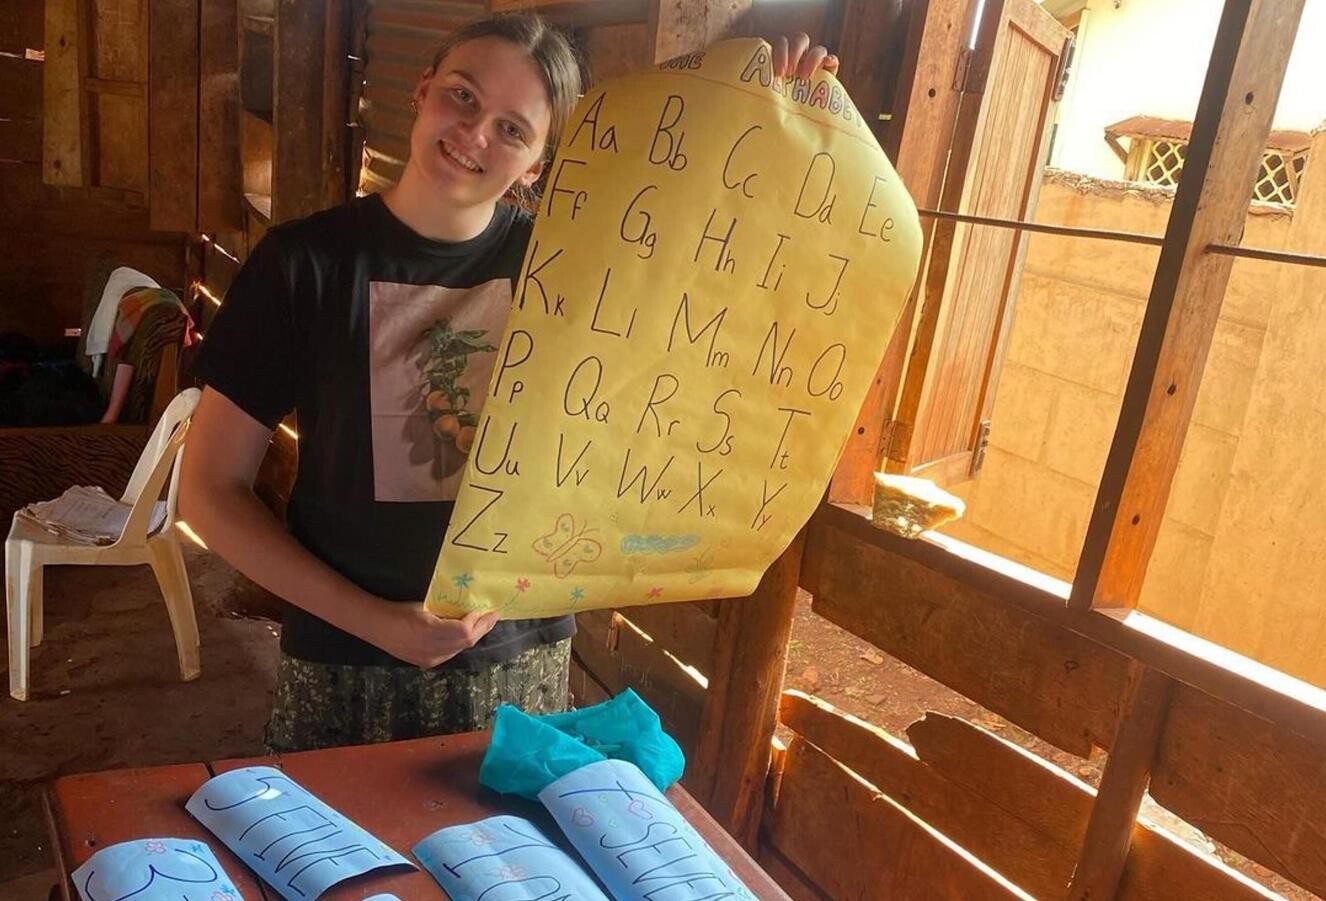 THE ALPHABET
Aa Bb Cc Dd Ee
Ff Gg Hh Ii Jj
Kk Ll Mm Nn Oo
Pp Qq Rr Ss Tt
Uu Vv Ww Xx Yy
Zz
3
5 FIVE
1 ON
7 SEVEN